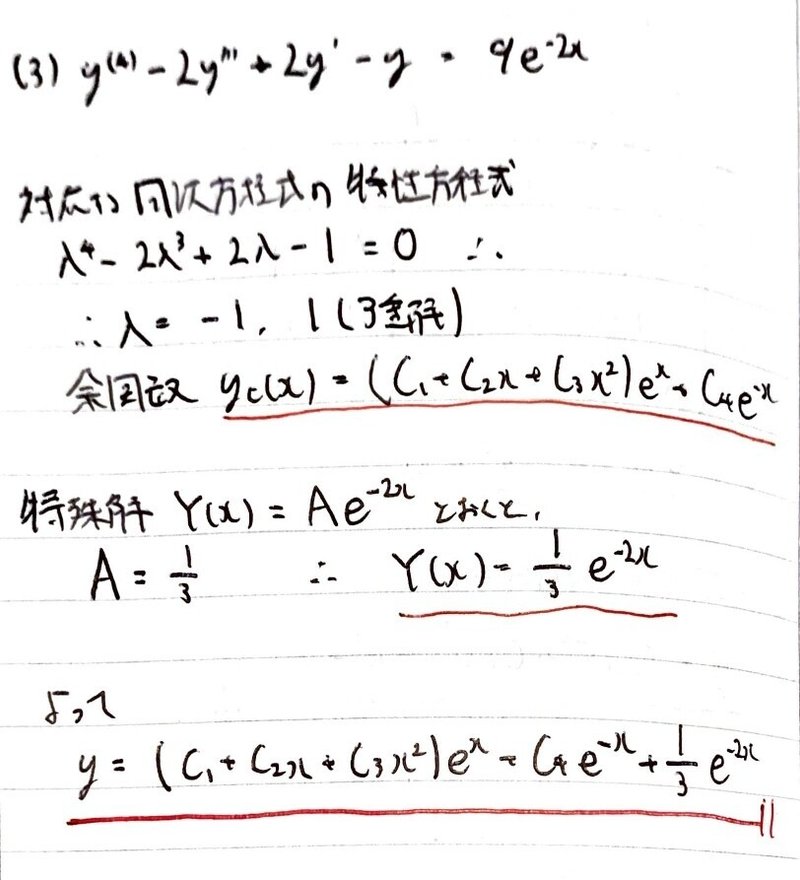 (3) y⁽⁴⁾ - 2y''' + 2y' - y = 9e⁻²ˣ
対応する同次方程式の特性方程式
λ⁴ - 2λ³ + 2λ - 1 = 0 ∴
∴ λ = -1, 1 (3重解)
余関数 yc(x) = (C₁ + C₂x + C₃x²)eˣ + C₄e⁻ˣ
特殊解 Y(x) = Ae⁻²ˣ とおくと,
A = 1/3 ∴ Y(x) = 1/3 e⁻²ˣ
よって
y = (C₁ + C₂x + C₃x²)eˣ + C₄e⁻ˣ + 1/3 e⁻²ˣ